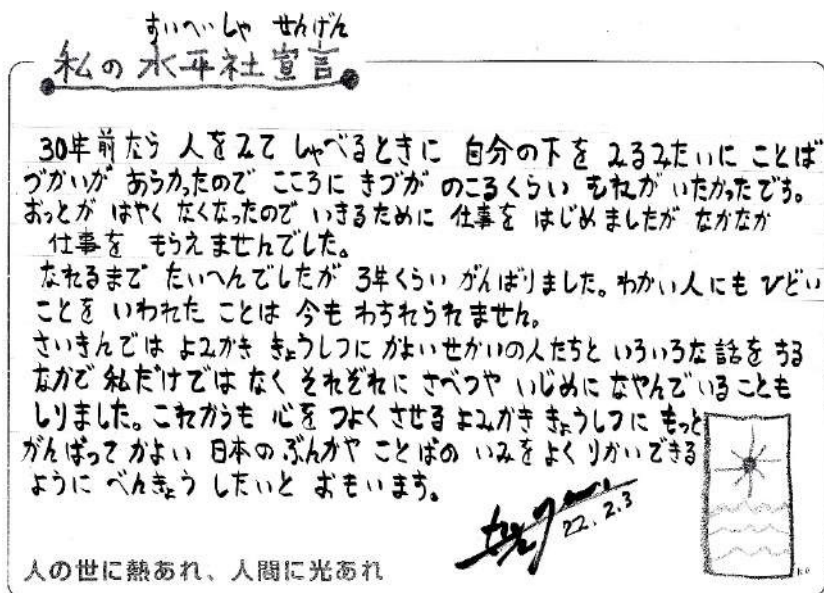 すいへいしゃ せんげん
私の水平社宣言
30年前なら 人をみて しゃべるときに 自分の下を みるみたいに ことば
づかいが あらかったので こころに きづが のこるくらい むねが いたかったです。
おっとが はやく なくなったので いきるために 仕事を はじめましたが なかなか
仕事を もらえませんでした。
なれるまで たいへんでしたが 3年くらい がんばりました。わかい人にも ひどい
ことを いわれた ことは 今も わすれられません。
さいきんでは よみかき きょうしつに かよいせかいの人たちと いろいろな話を する
なかで 私だけでは なく それぞれに さべつや いじめに なやんでいることも
しりました。これからも 心を つよくさせる よみかき きょうしつに もっと
がんばって かよい 日本の ぶんかや ことばの いみを よく りかいできる
ように べんきょう したいと おもいます。
22.2.3
人の世に熱あれ、人間に光あれ